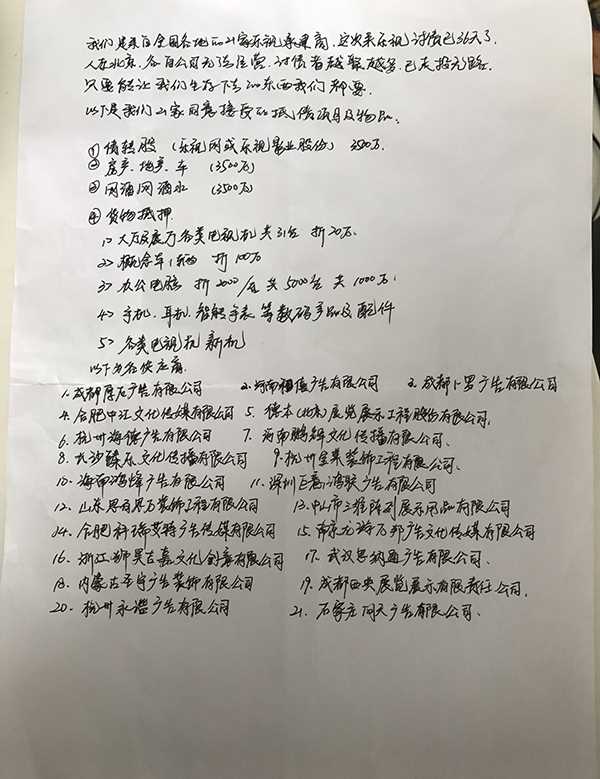 我们是来自全国各地的21家乐视供应商,这次来乐视讨债已36天了.
人在北京,各自公司无法经营,讨债者越聚越多,已走投无路.
只要能让我们生存下去的东西我们都要.
以下是我们21家同意接受的抵债项目及物品.
① 债转股 (乐视网或乐视影业股份) 3500万.
② 房产、地产、车 (3500万)
③ 网酒网酒水 (3500万)
④ 货物抵押.
1> 大厅及展厅各类电视机 共31台 折20万.
2> 概念车1辆 折100万
3> 办公电脑 折2000/台 共5000台 共1000万.
4> 手机、耳机、智能手表 等数码产品及配件
5> 各类电视机 新机
以下为各供应商.
1. 成都厚石广告有限公司 2. 河南相信广告有限公司 3. 成都卜罗广告有限公司
4. 合肥中江文化传媒有限公司 5. 标本(北京)展览展示工程股份有限公司.
6. 杭州海德广告有限公司 7. 河南鹏辉文化传播有限公司.
8. 长沙臻乐文化传播有限公司 9. 杭州金集装饰工程有限公司.
10. 海南鸿烽广告有限公司 11. 深圳巨龙鸿骏广告有限公司
12. 山东思有思万装饰工程有限公司 13. 中山市三维陈列展示用品有限公司
14. 合肥科瑞艾特广告传媒有限公司 15. 南京龙游万邦广文化传媒有限公司
16. 浙江狮昊古嘉文化创意有限公司 17. 武汉思纳通广告有限公司.
18. 内蒙古至宇广告装饰有限公司 19. 成都西央展览展示有限责任公司.
20. 杭州永谐广告有限公司 21. 石家庄问天广告有限公司.